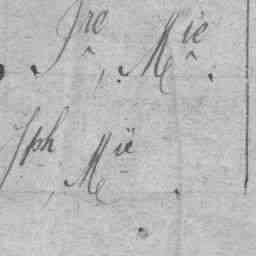 Jre Mie
Jph Mie